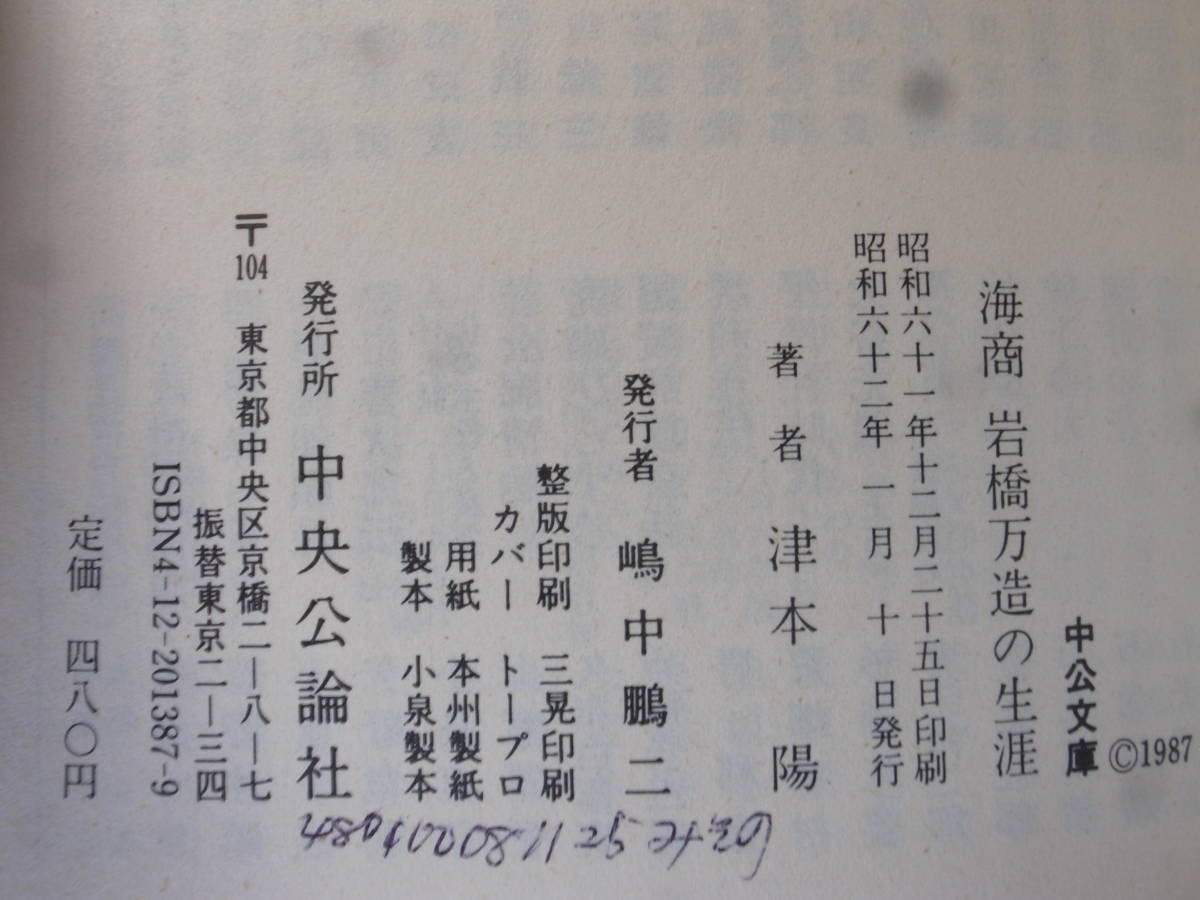 中公文庫 ©1987
海商 岩橋万造の生涯
昭和六十一年十二月二十五日印刷
昭和六十二年 一月 十日発行
著者 津本 陽
発行者 嶋中鵬二
整版印刷 三晃印刷
カバー トープロ
用紙 本州製紙
製本 小泉製本
発行所 中央公論社
〒104 東京都中央区京橋二―八―七
振替東京二―三四
ISBN4-12-201387-9
定価 四八〇円